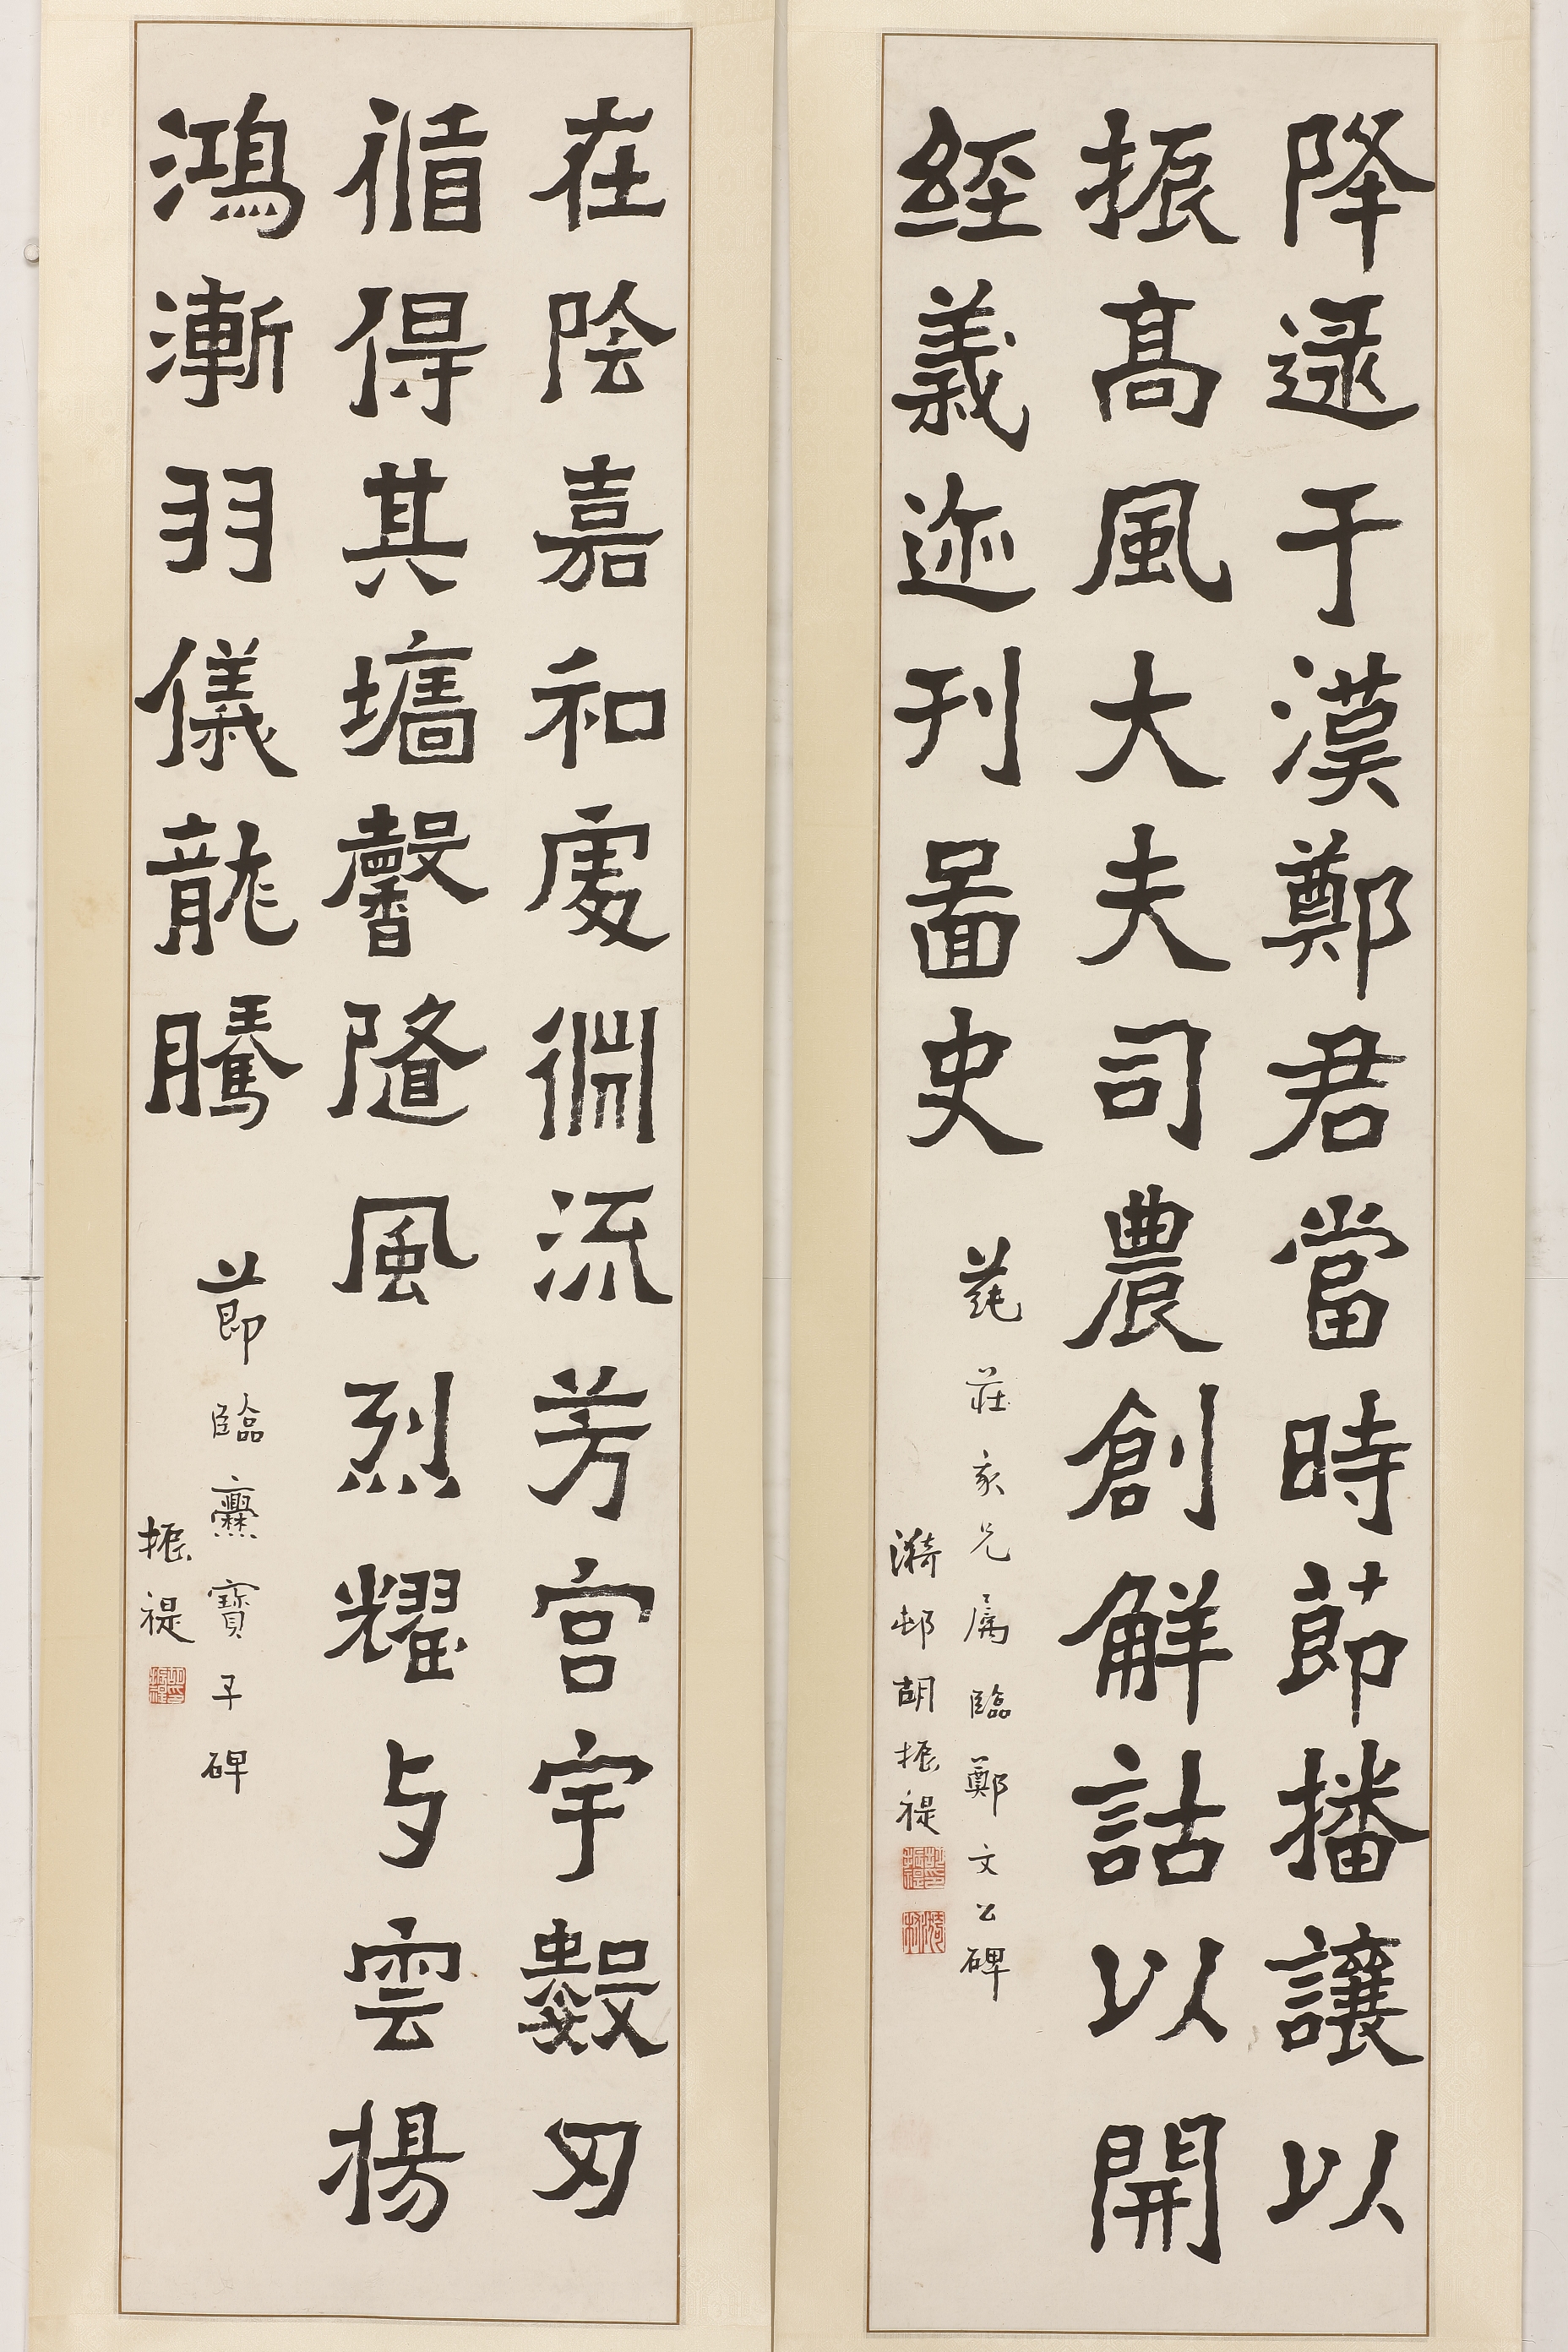 降逯于漢鄭君當時莭播讓以
振髙風大夫司農創解詁以開
經義迹刊圖史
莼莊亥兄属臨鄭文公碑
漪邨胡振禔
在陰嘉和處淵流芳宫宇數刃
循得其墻馨隨風烈耀与雲揚
鴻漸羽儀龍騰
莭臨爨寶子碑
振禔